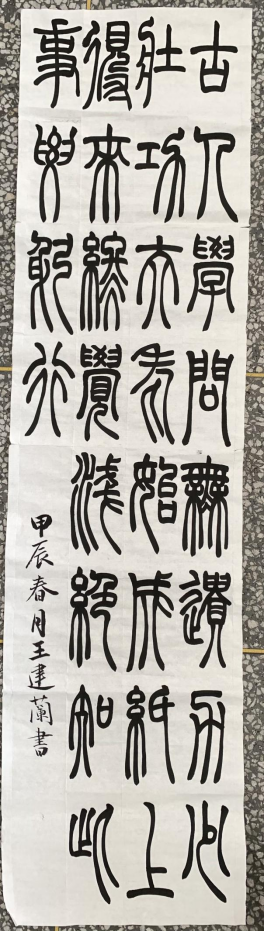 古人學問無遺力少
壯功夫老始成紙上
得來終覺淺絕知此
事要躬行
甲辰春月王建蘭書